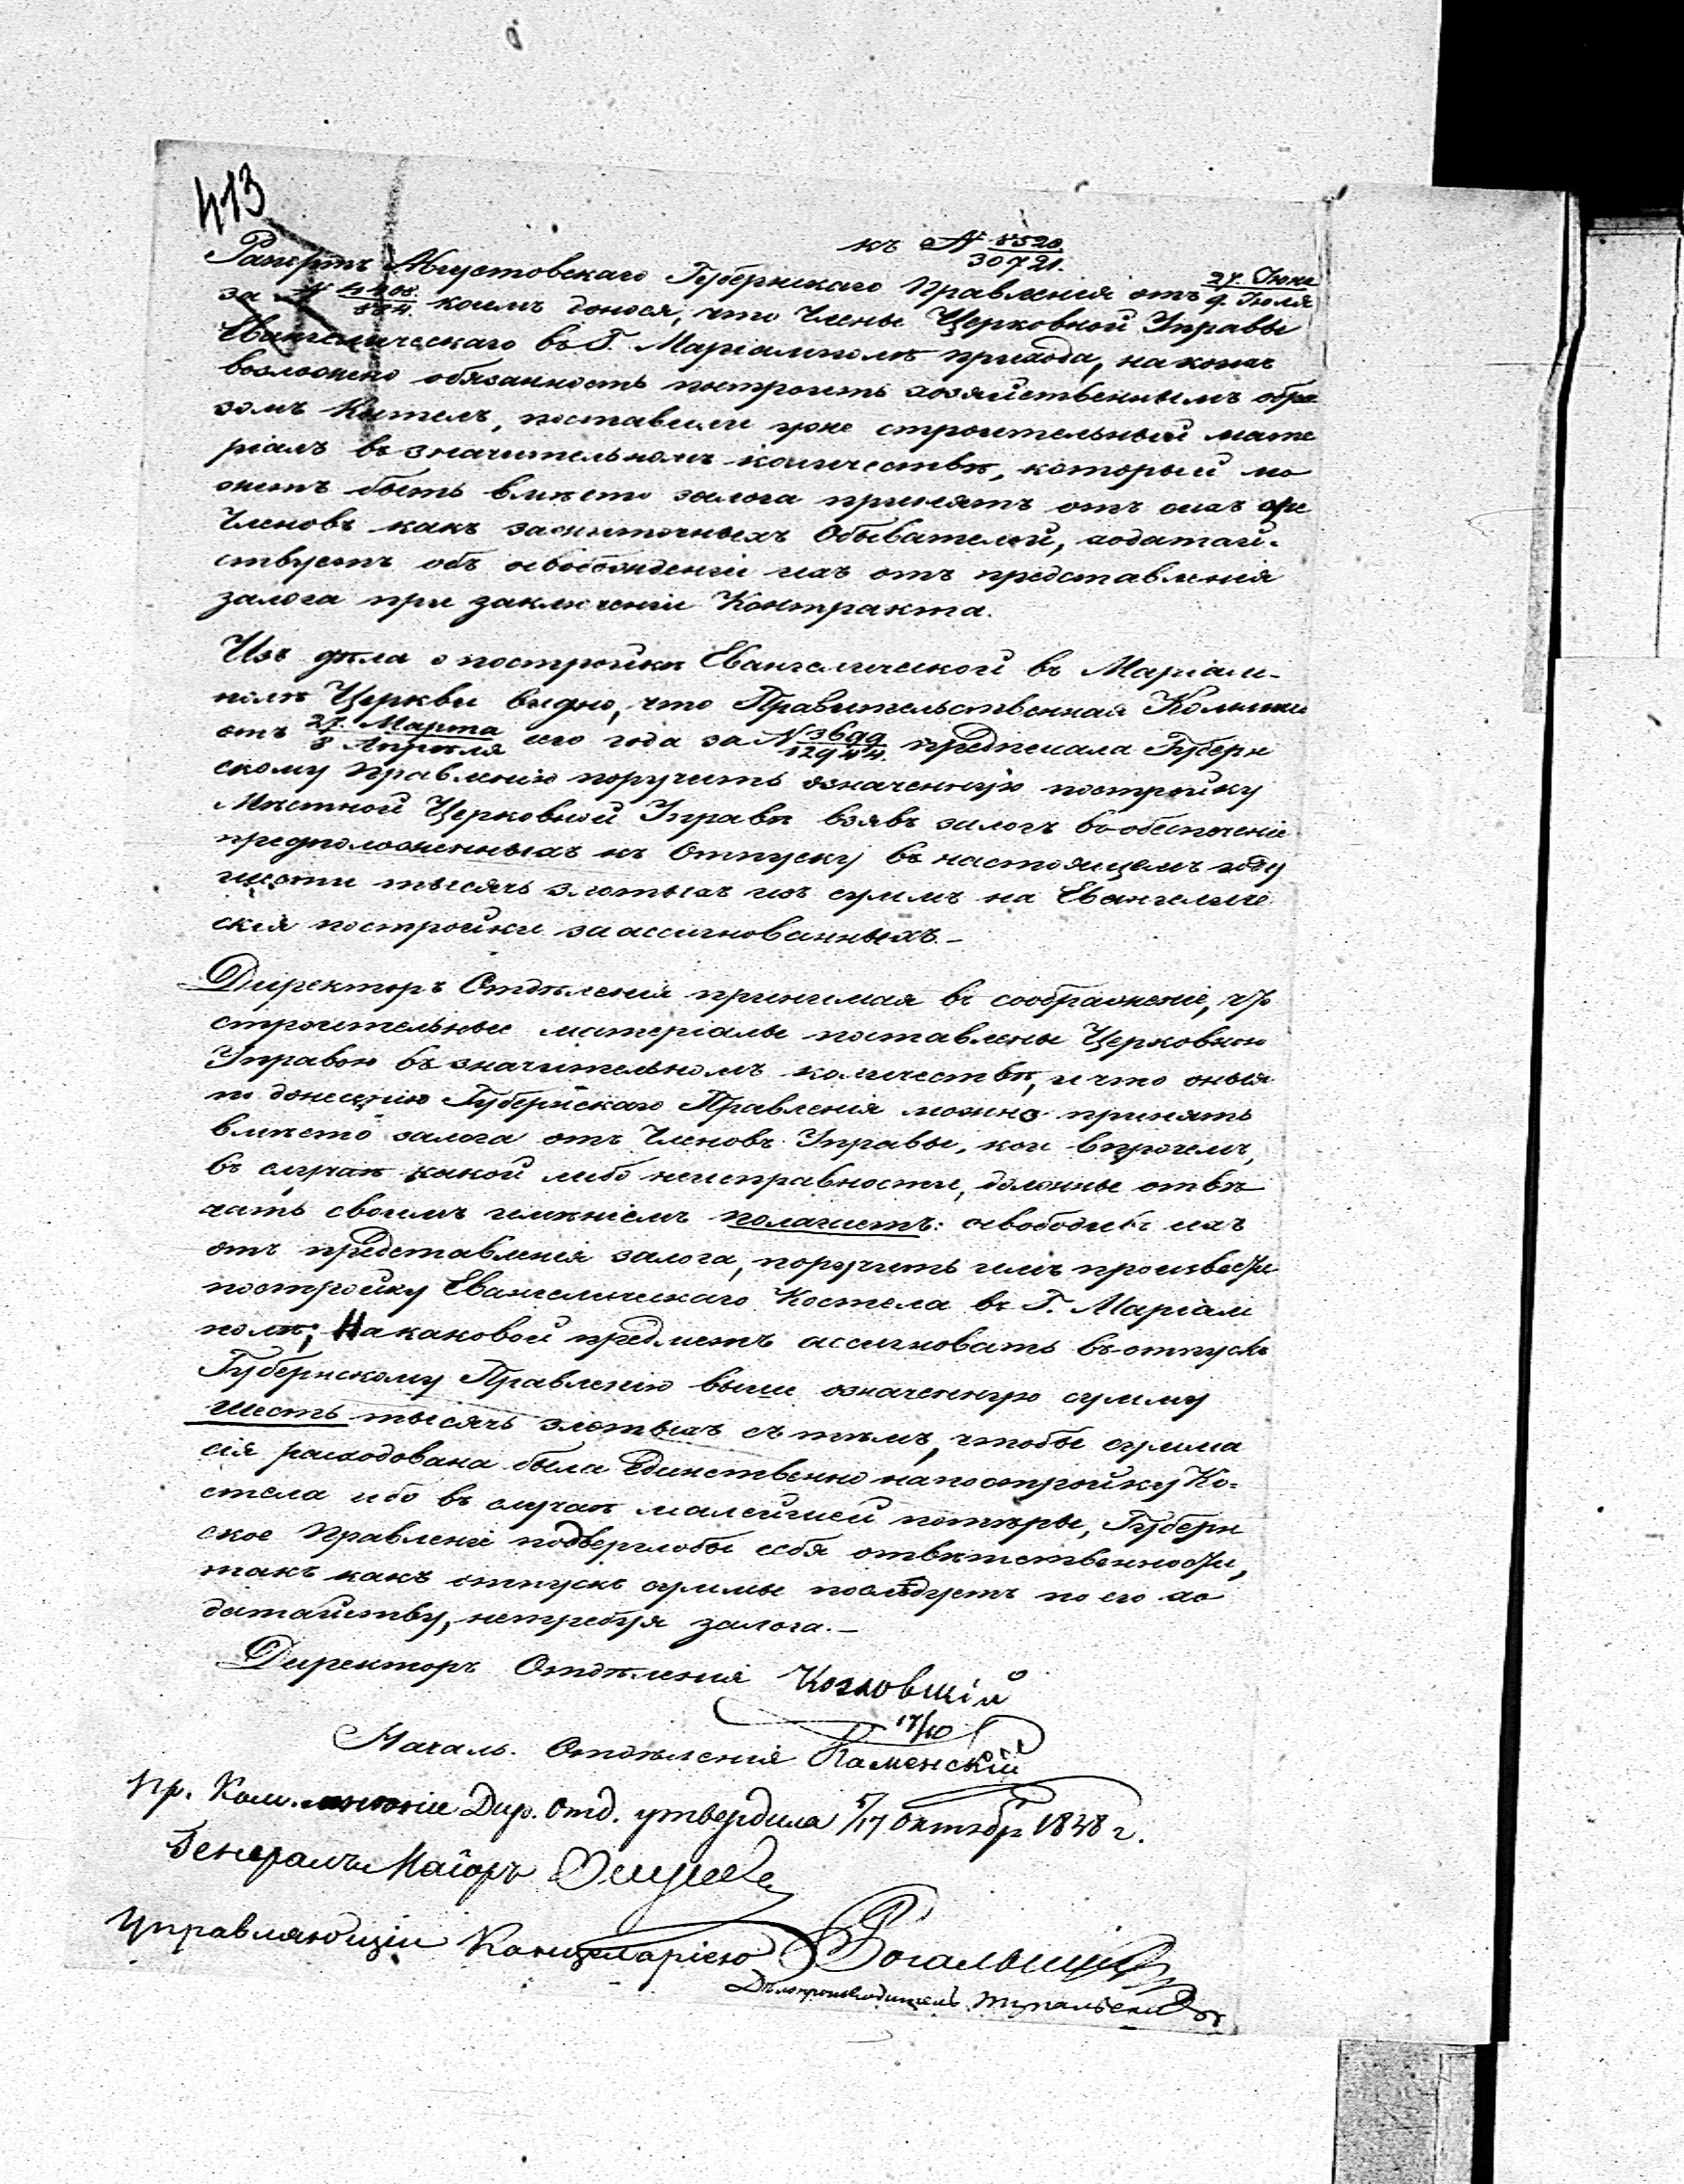 413
къ № 8520/30721.
Рапортъ Августовскаго Губернскаго Правленія отъ 27. Іюня/9. Іюля
за № коимъ донося, что Члены Церковной Управы
Евангелическаго въ Г. Маріамполѣ прихода, на коихъ
возложено обязанность построить хозяйственнымъ обра
зомъ Костелъ, поставили уже строительный мате
ріалъ въ значительномъ количествѣ, который мо
жетъ быть вмѣсто залога принятъ отъ сихъ же
Членовъ какъ зажиточныхъ Обывателей, ходатай-
ствуетъ объ освобожденіи ихъ отъ представленія
залога при заключеніи Контракта.
Изъ дѣла о постройкѣ Евангелической въ Маріам-
полѣ Церкви видно, что Правительственная Коммис
отъ 27. Марта/8 Апрѣля сего года за № 3699/12944. предписала Губерн
скому Правленію поручить означенную постройку
Мѣстной Церковной Управѣ взявъ залогъ въ обеспеченіе
предположенныхъ къ Отпуску въ настоящемъ году
шести тысячъ злотыхъ изъ суммъ на Евангеличе
скія постройки заассигнованныхъ.-
Директоръ Отдѣленія принимая въ соображеніе, что
строительные матеріалы поставлены Церковною
Управою въ значительномъ количествѣ, и что оные
по донесенію Губернскаго Правленія можно принять
вмѣсто залога отъ Членовъ Управы, кои впрочемъ,
въ случаѣ какой либо неисправности, должны отвѣ
чать своимъ имѣніемъ полагаетъ: освободивъ ихъ
отъ представленія залога, поручить имъ произвести
постройку Евангелическаго Костела въ Г. Маріам
полѣ; На каковой предметъ ассигновать въ отпускъ
Губернскому Правленію выше означенную сумму
шесть тысячъ злотыхъ съ тѣмъ, чтобы сумма
сія расходована была Единственно на постройку Ко-
стела ибо въ случаѣ малейшей потѣры, Губерн
ское Правленіе подверглобы себя отвѣтственности,
такъ какъ отпускъ суммы послѣдуетъ по его хо
датайству, нетребуя залога.-
Директоръ Отдѣленія Козловшій
17/10
Началь. Отдѣленія Каменскій
Пр. Ком. мнѣніе Дир. Отд. утвердила 5/17 Октябр 1838 г.
Генералъ Маіоръ
Управляющій Канцеляріею
Дѣлопроизводитель